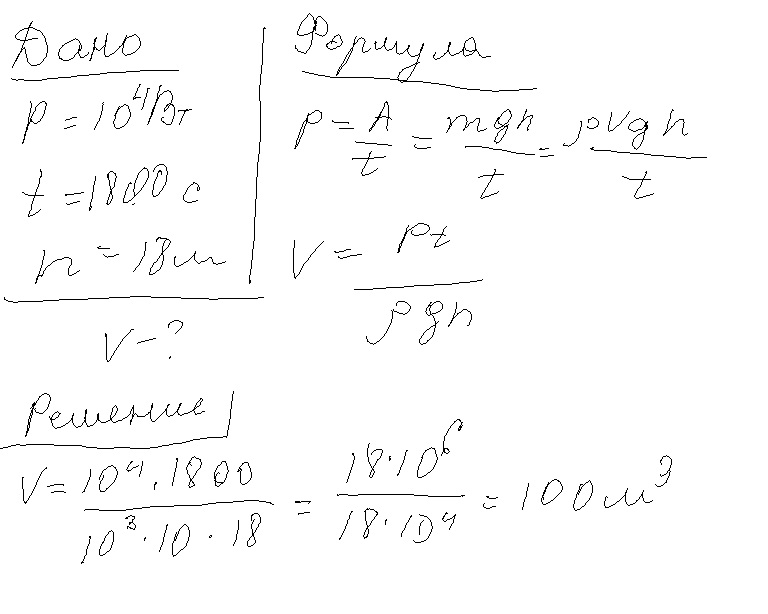 Дано
P = 10⁴ Вт
t = 1800 с
h = 18 м
V - ?
Формула
P = A/t = mgh/t = ρVgh/t
V = Pt/ρgh
Решение
V = 10⁴ · 1800/10³ · 10 · 18 = 18 · 10⁶/18 · 10⁴ = 100 м³